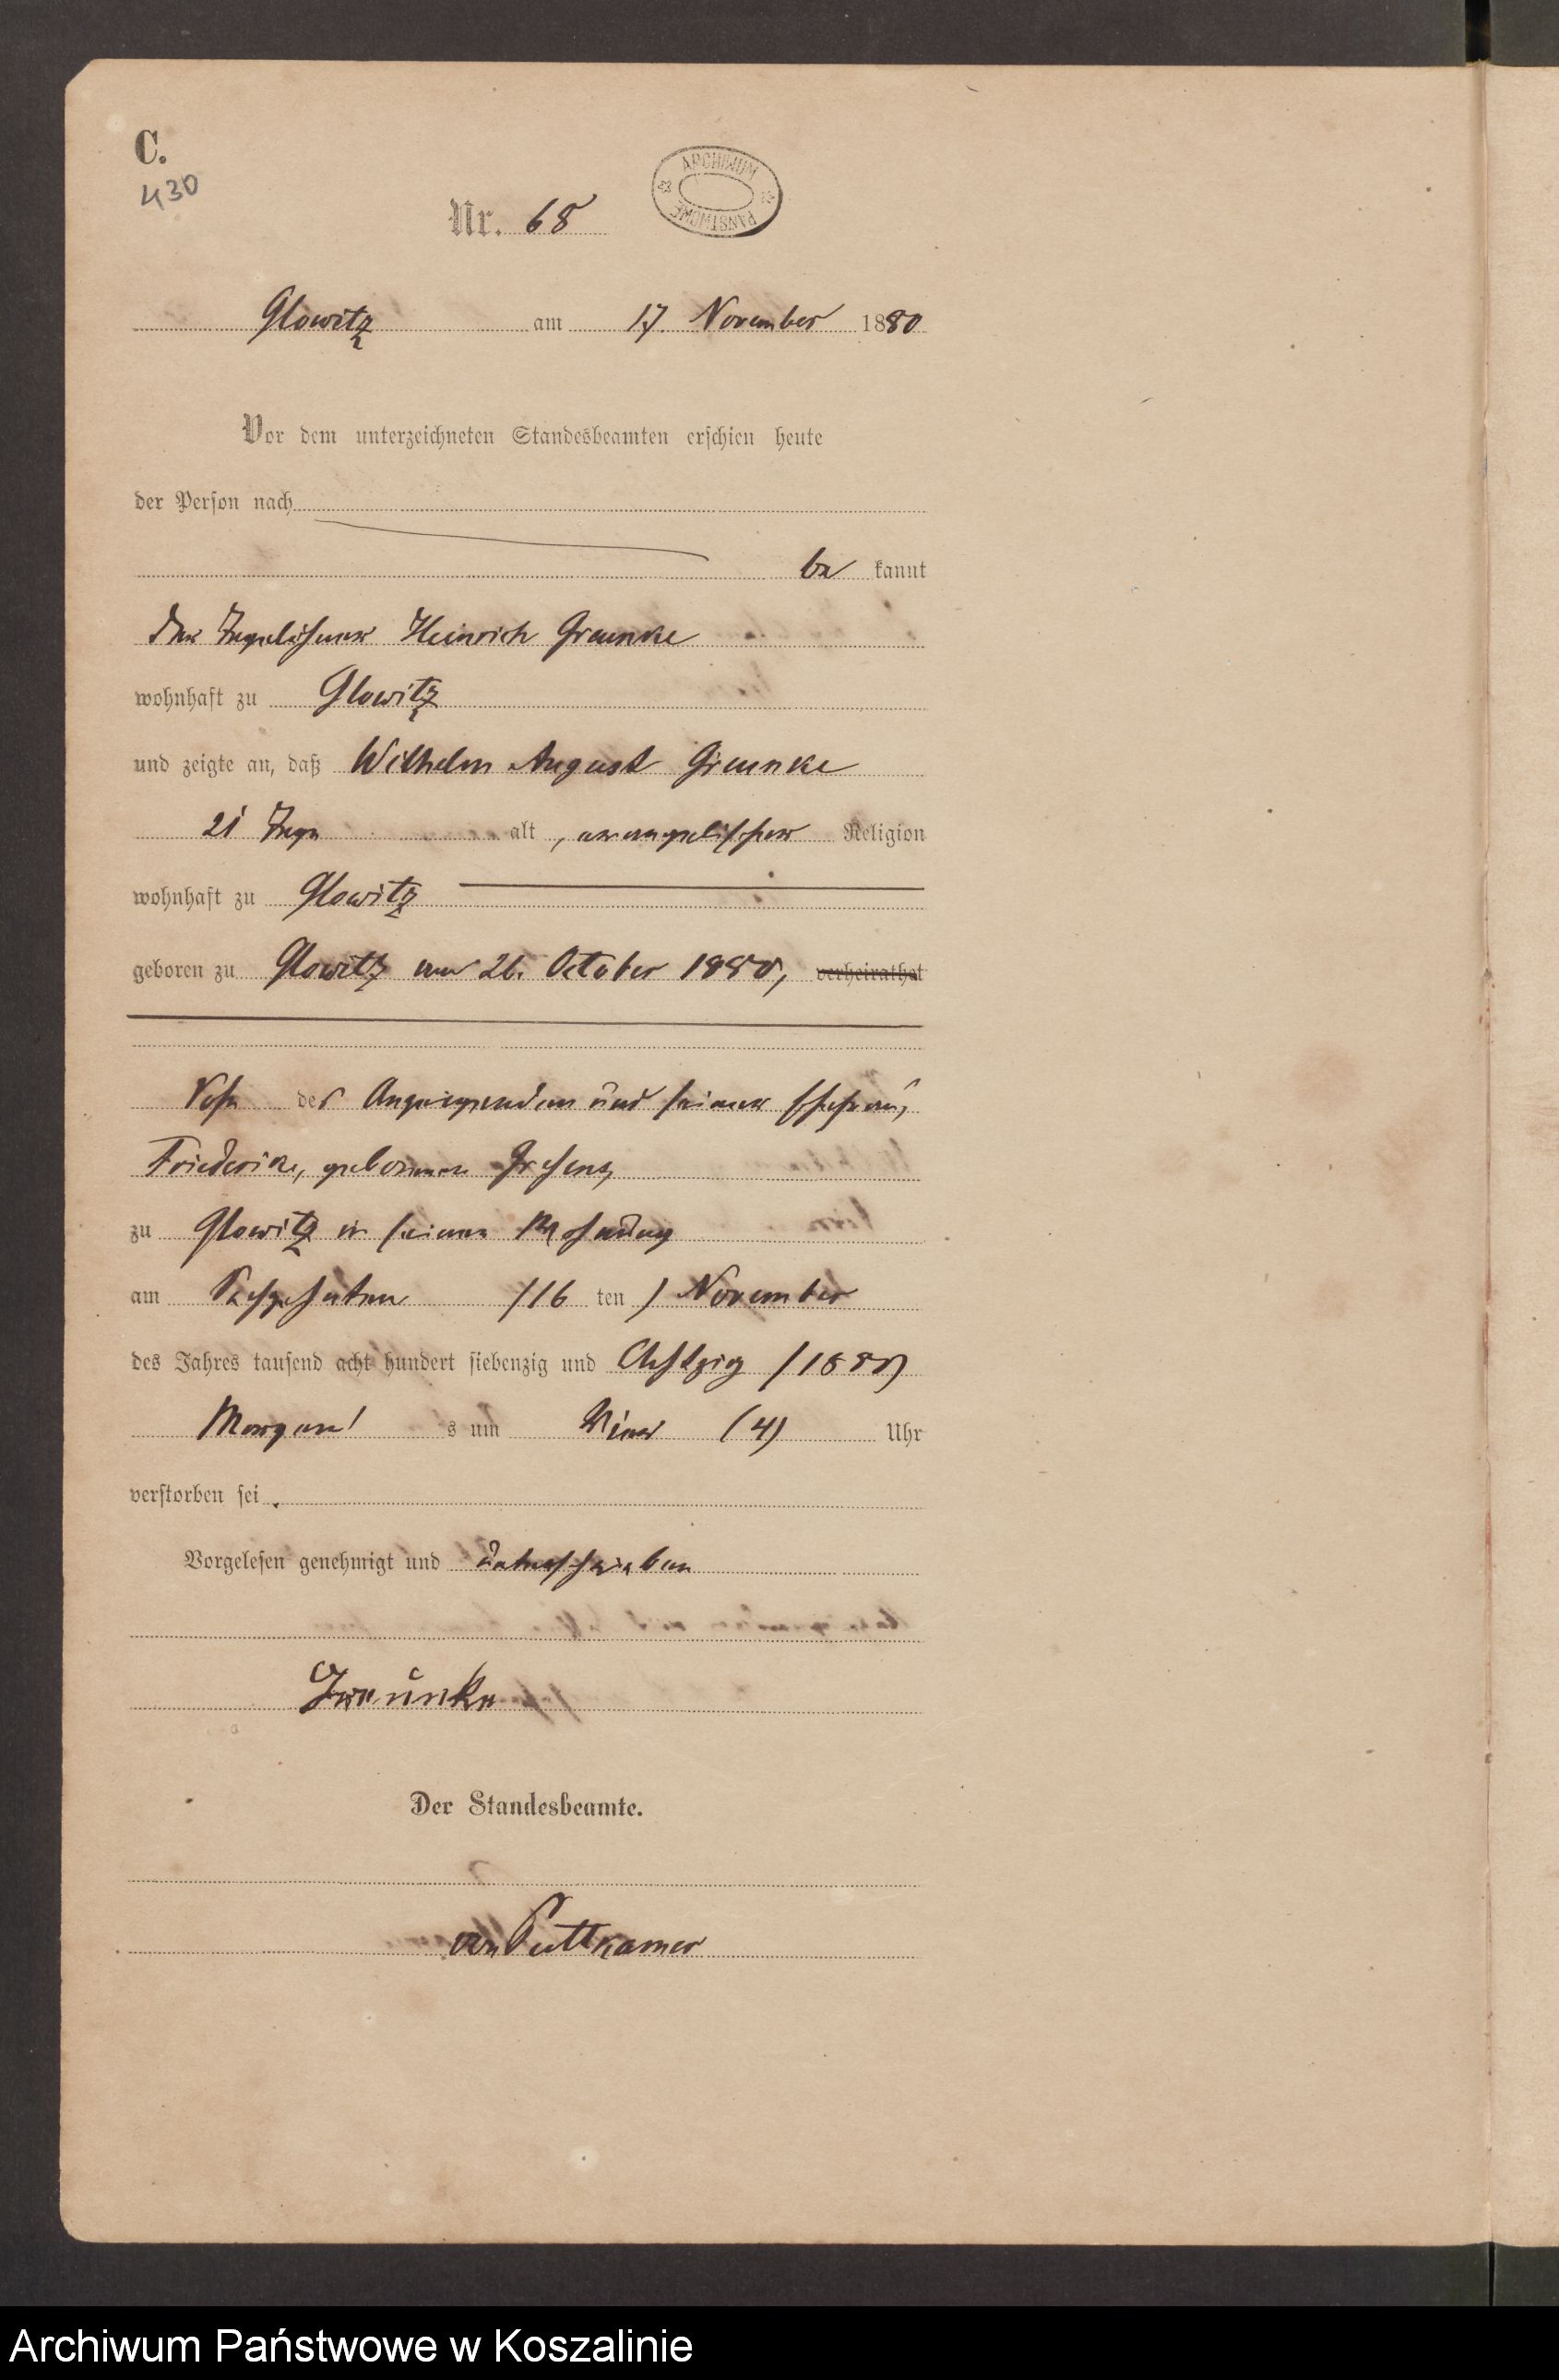 C.
430
Nr. 68
ARCHIWUM
PAŃSTWOWE
Glowitz am 17. November 1880
Vor dem unterzeichneten Standesbeamten erschien heute
der Person nach
be kannt
der Tagelöhner Heinrich Graunke
wohnhaft zu Glowitz
und zeigte an, daß Wilhelm August Graunke
21 Tage alt, evangelischer Religion
wohnhaft zu Glowitz
geboren zu Glowitz am 26. October 1880, verheirathet
Sohn des Anzeigenden und seiner Ehefrau,
Friederike, geborenen
zu Glowitz in seiner Wohnung
am Sechszehnten (16 ten) November
des Jahres tausend acht hundert siebenzig und Achtzig (1880)
Morgens um Vier (4) Uhr
verstorben sei.
Vorgelesen genehmigt und unterschrieben
Graunke
Der Standesbeamte.
von Puttkamer
Archiwum Państwowe w Koszalinie